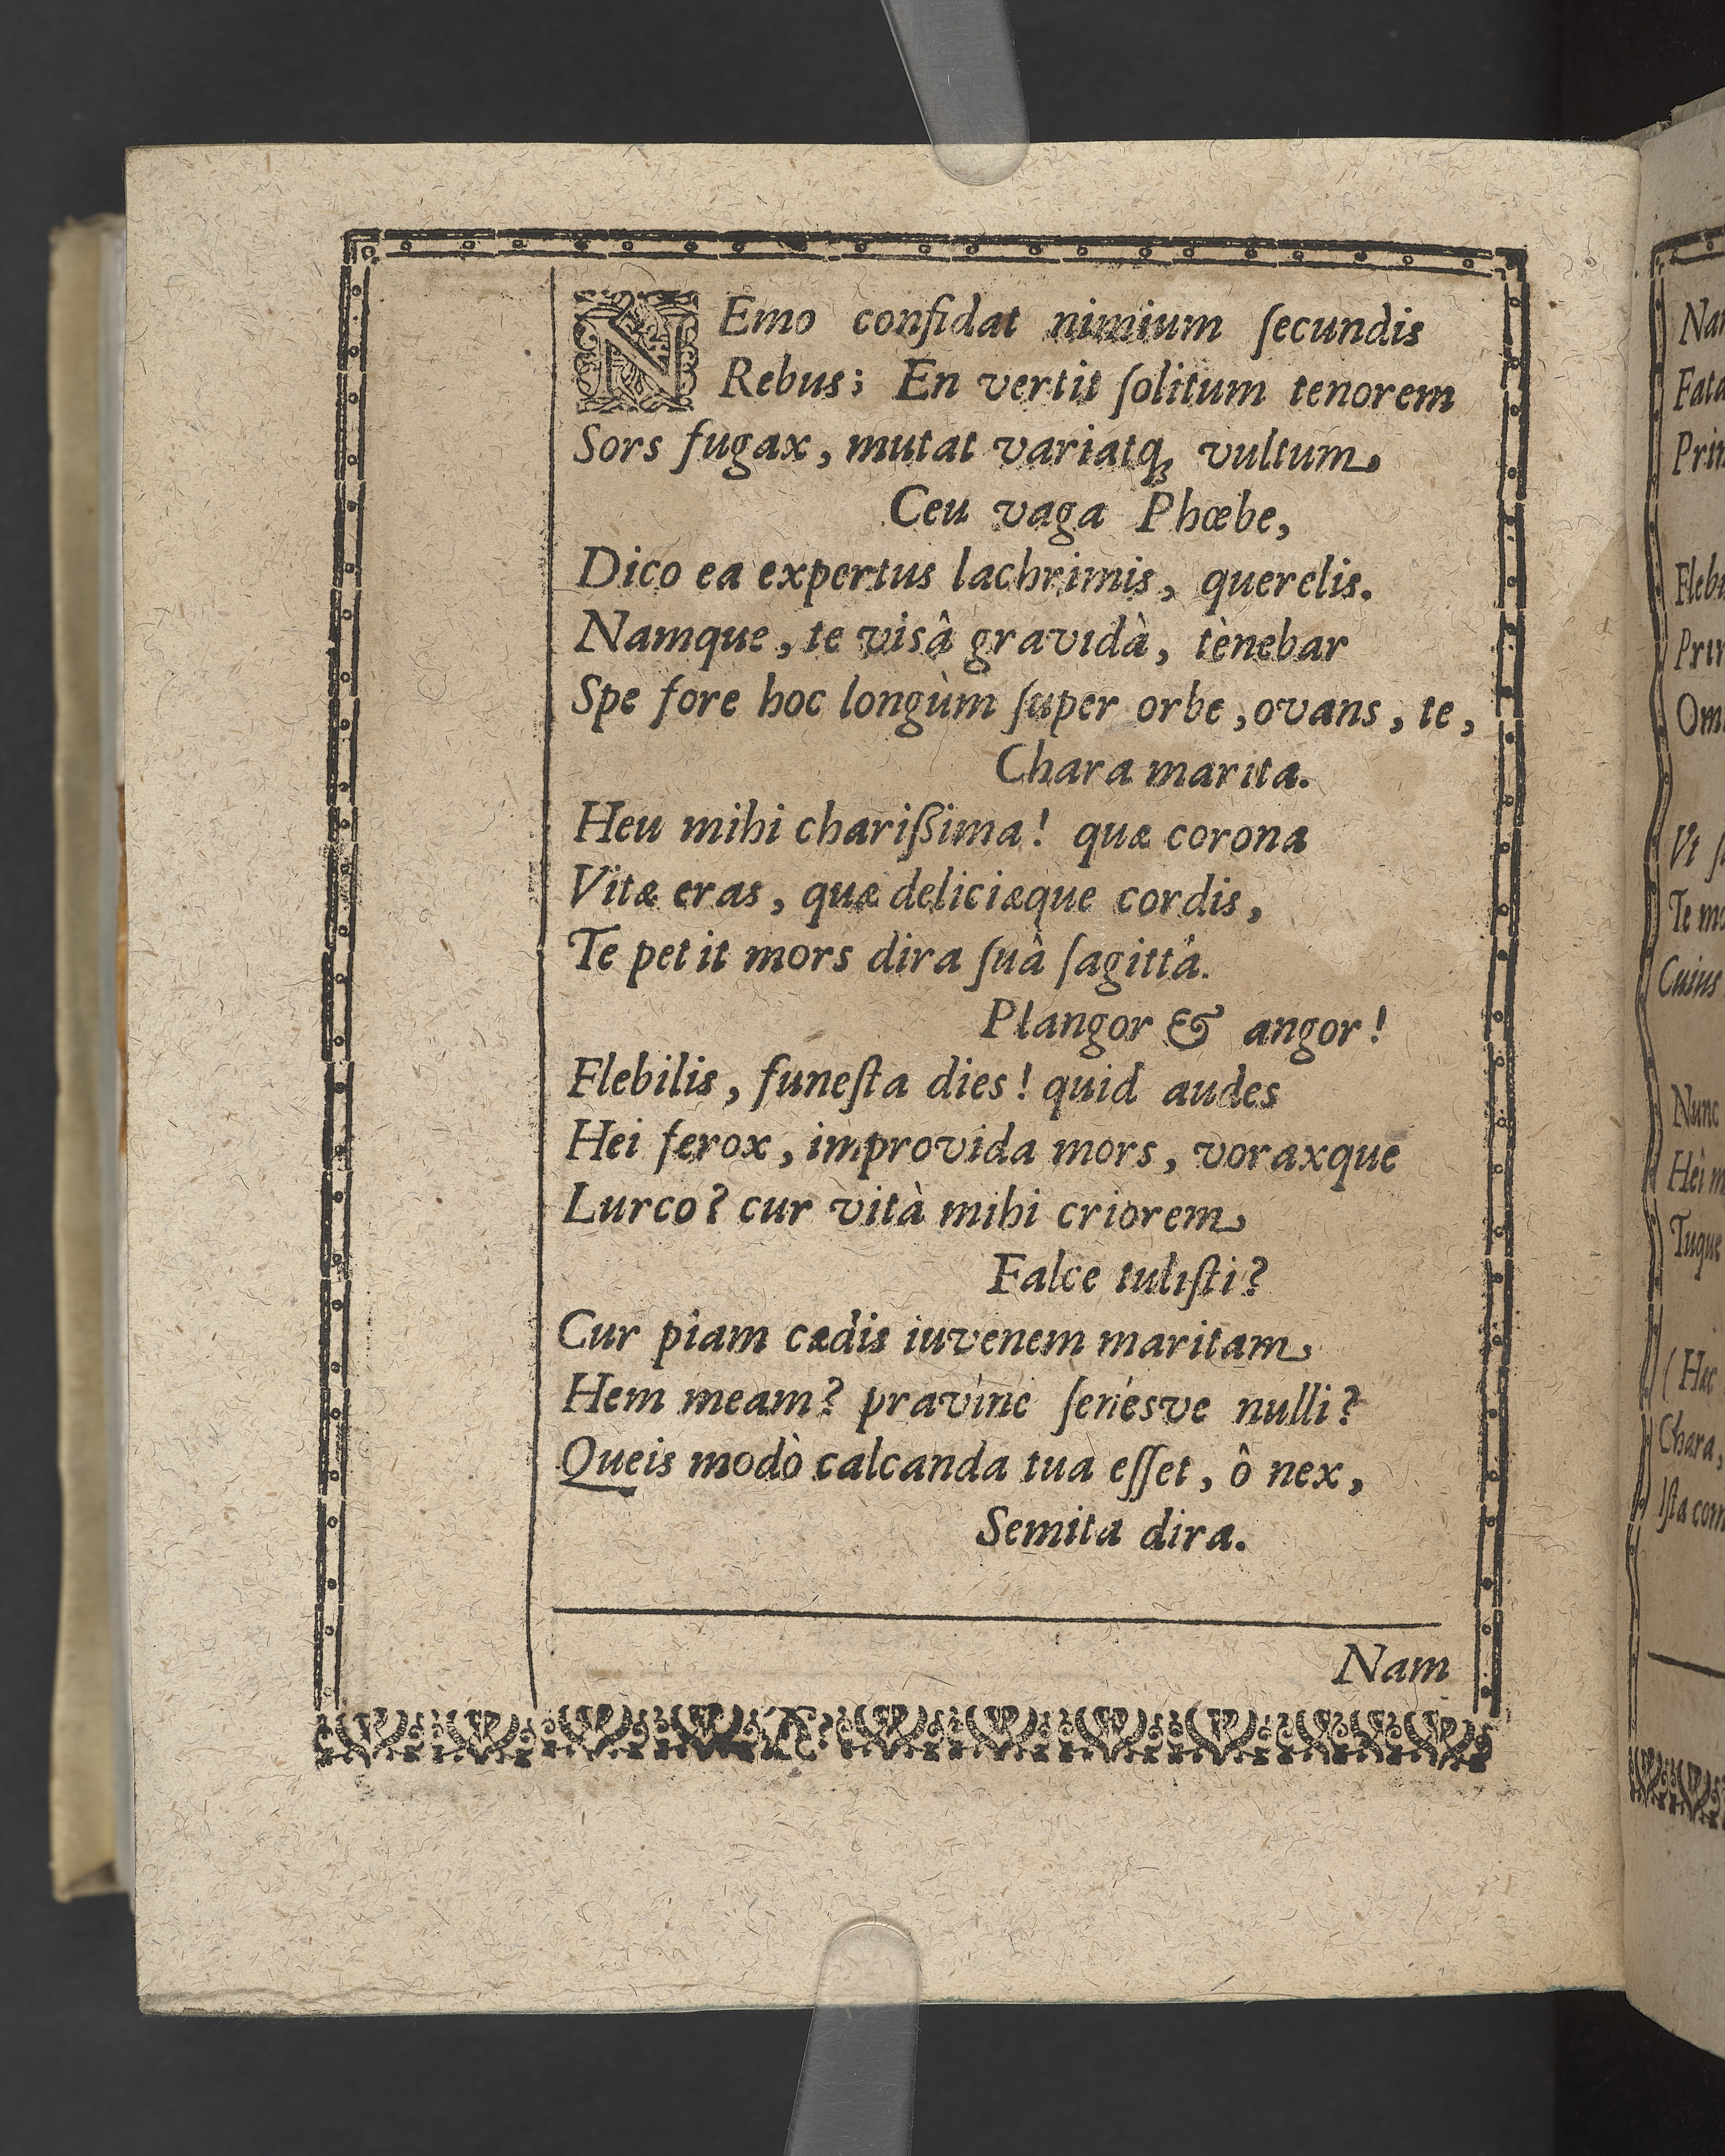 NEmo confidat nimium ſecundis
Rebus; En vertit ſolitum tenorem
Sors fugax, mutat variatq́; vultum,
Ceu vaga Phœbe,
Dico ea expertus lachrimis, querelis.
Namque, te visâ gravidà, tènebar
Spe fore hoc longùm ſuper orbe, ovans, te,
Chara marita.
Heu mihi chariſsima! quæ corona
Vitæ eras, quæ deliciæque cordis,
Te petit mors dira ſuâ ſagittá.
Plangor & angor!
Flebilis, funeſta dies! quid audes
Hei ferox, improvida mors, voraxque
Lurco? cur vità mihi criorem
Falce tuliſti?
Cur piam cædis iuvenem maritam,
Hem meam? pravine ſenésve nulli?
Queis modò calcanda tua eſſet, ô nex,
Semita dira.
Nam
Fata
Flebi
Te mo
Cuius
Nunc
Tuque
(Hæc
Chara,